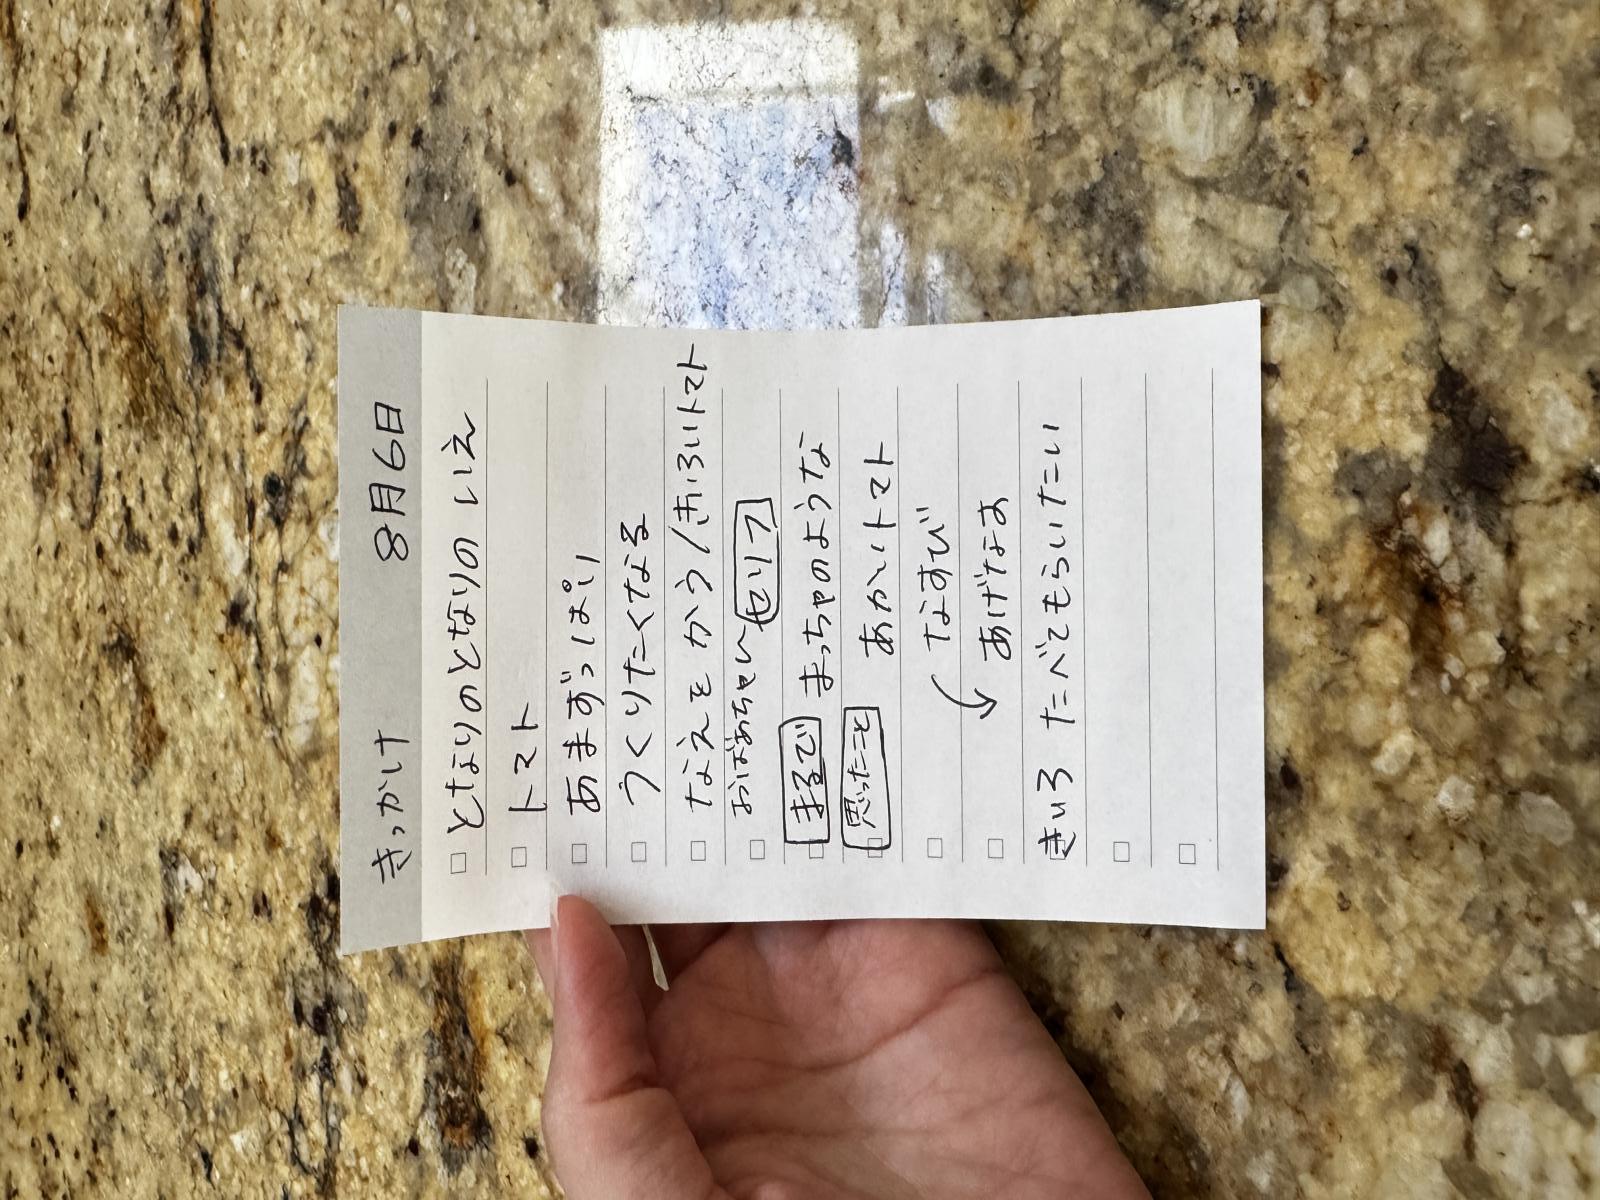 きっかけ 8月6日
となりのとなりのとなりの いえ
トマト
あまずっぱい
つくりたくなる
なえを かう/きいろいトマト
おばあちゃん セリフ
まるで まっちゃのような
思ったこと あかいトマト
なすび
あげなあ
きいろ たべてもらいたい